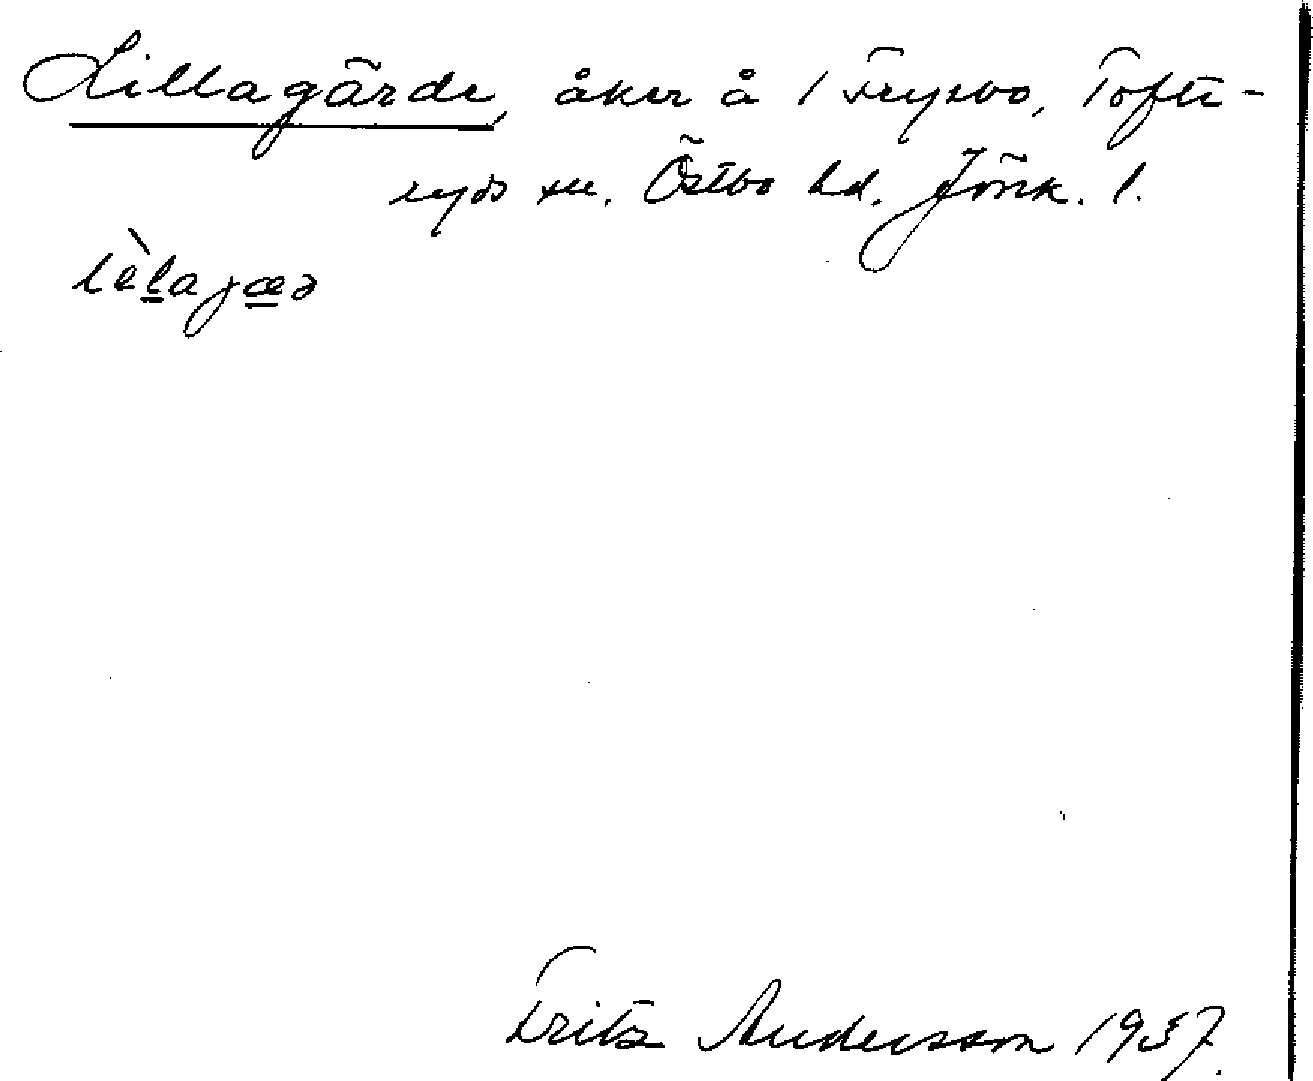 Lillagärde, åker å Fryebo, Tofte-
ryds sn. Östbo hd. Jönk. l.
lèlajæə
Fritz Andersson 1937.